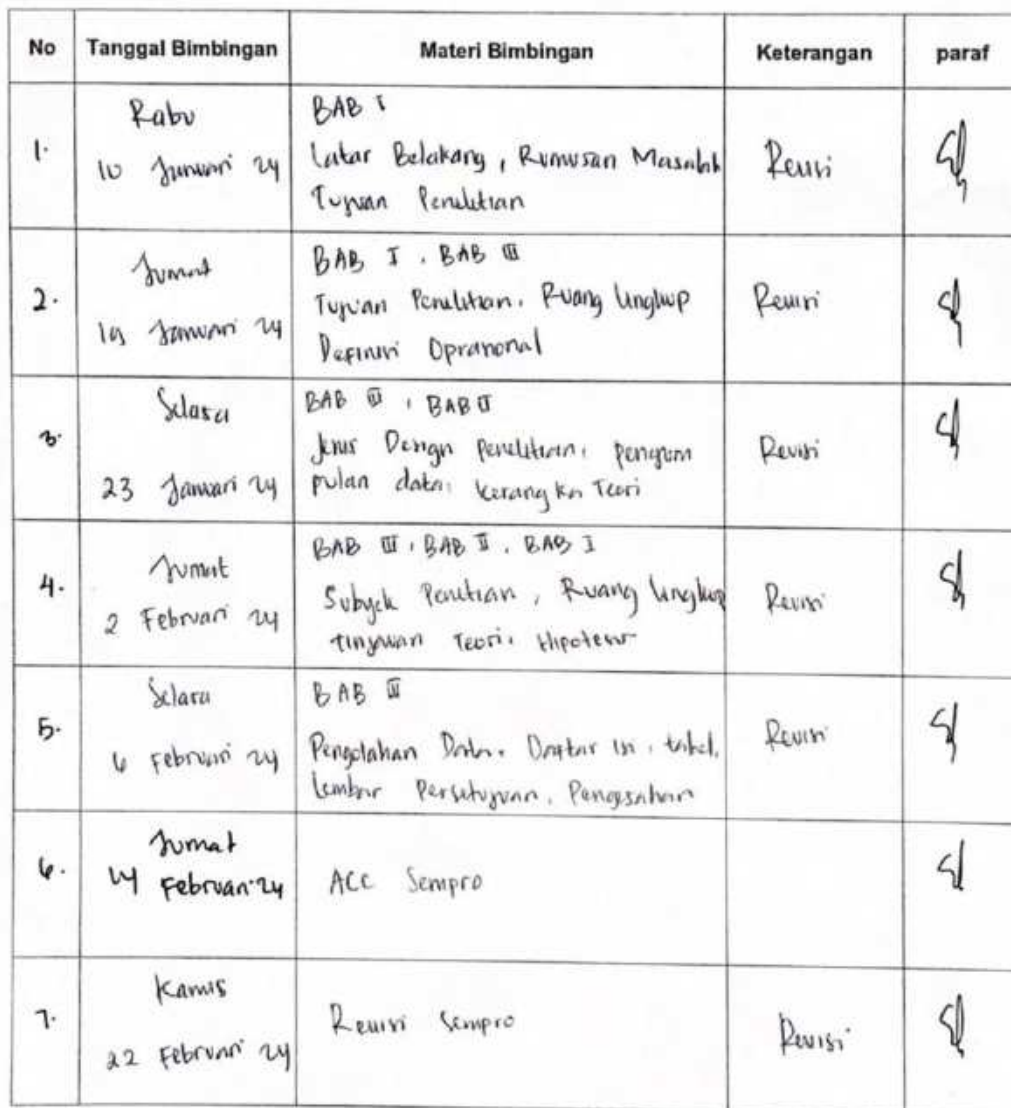 No Tanggal Bimbingan Materi Bimbingan Keterangan paraf
1. Rabu
10 Januari 24
BAB I
Latar Belakang, Rumusan Masalah
Tujuan Penelitian
Revisi
2. Jumat
19 Januari 24
BAB I, BAB III
Tujuan Penelitian, Ruang Lingkup
Definisi Oprasional
Revisi
3. Selasa
23 Januari 24
BAB III, BAB II
Jenis Design Penelitian, pengum
pulan data, kerangka Teori
Revisi
4. Jumat
2 Februari 24
BAB III, BAB II, BAB I
Subyek Penelitian, Ruang lingkup
Tinjauan Teori, Hipotesis
Revisi
5. Selasa
6 Februari 24
BAB
Pengolahan Data, Daftar isi, tabel,
Lembar Persetujuan, Pengesahan
Revisi
6. Jumat
Februari 24
ACC Sempro
7. Kamis
22 Februari 24
Revisi Sempro
Revisi